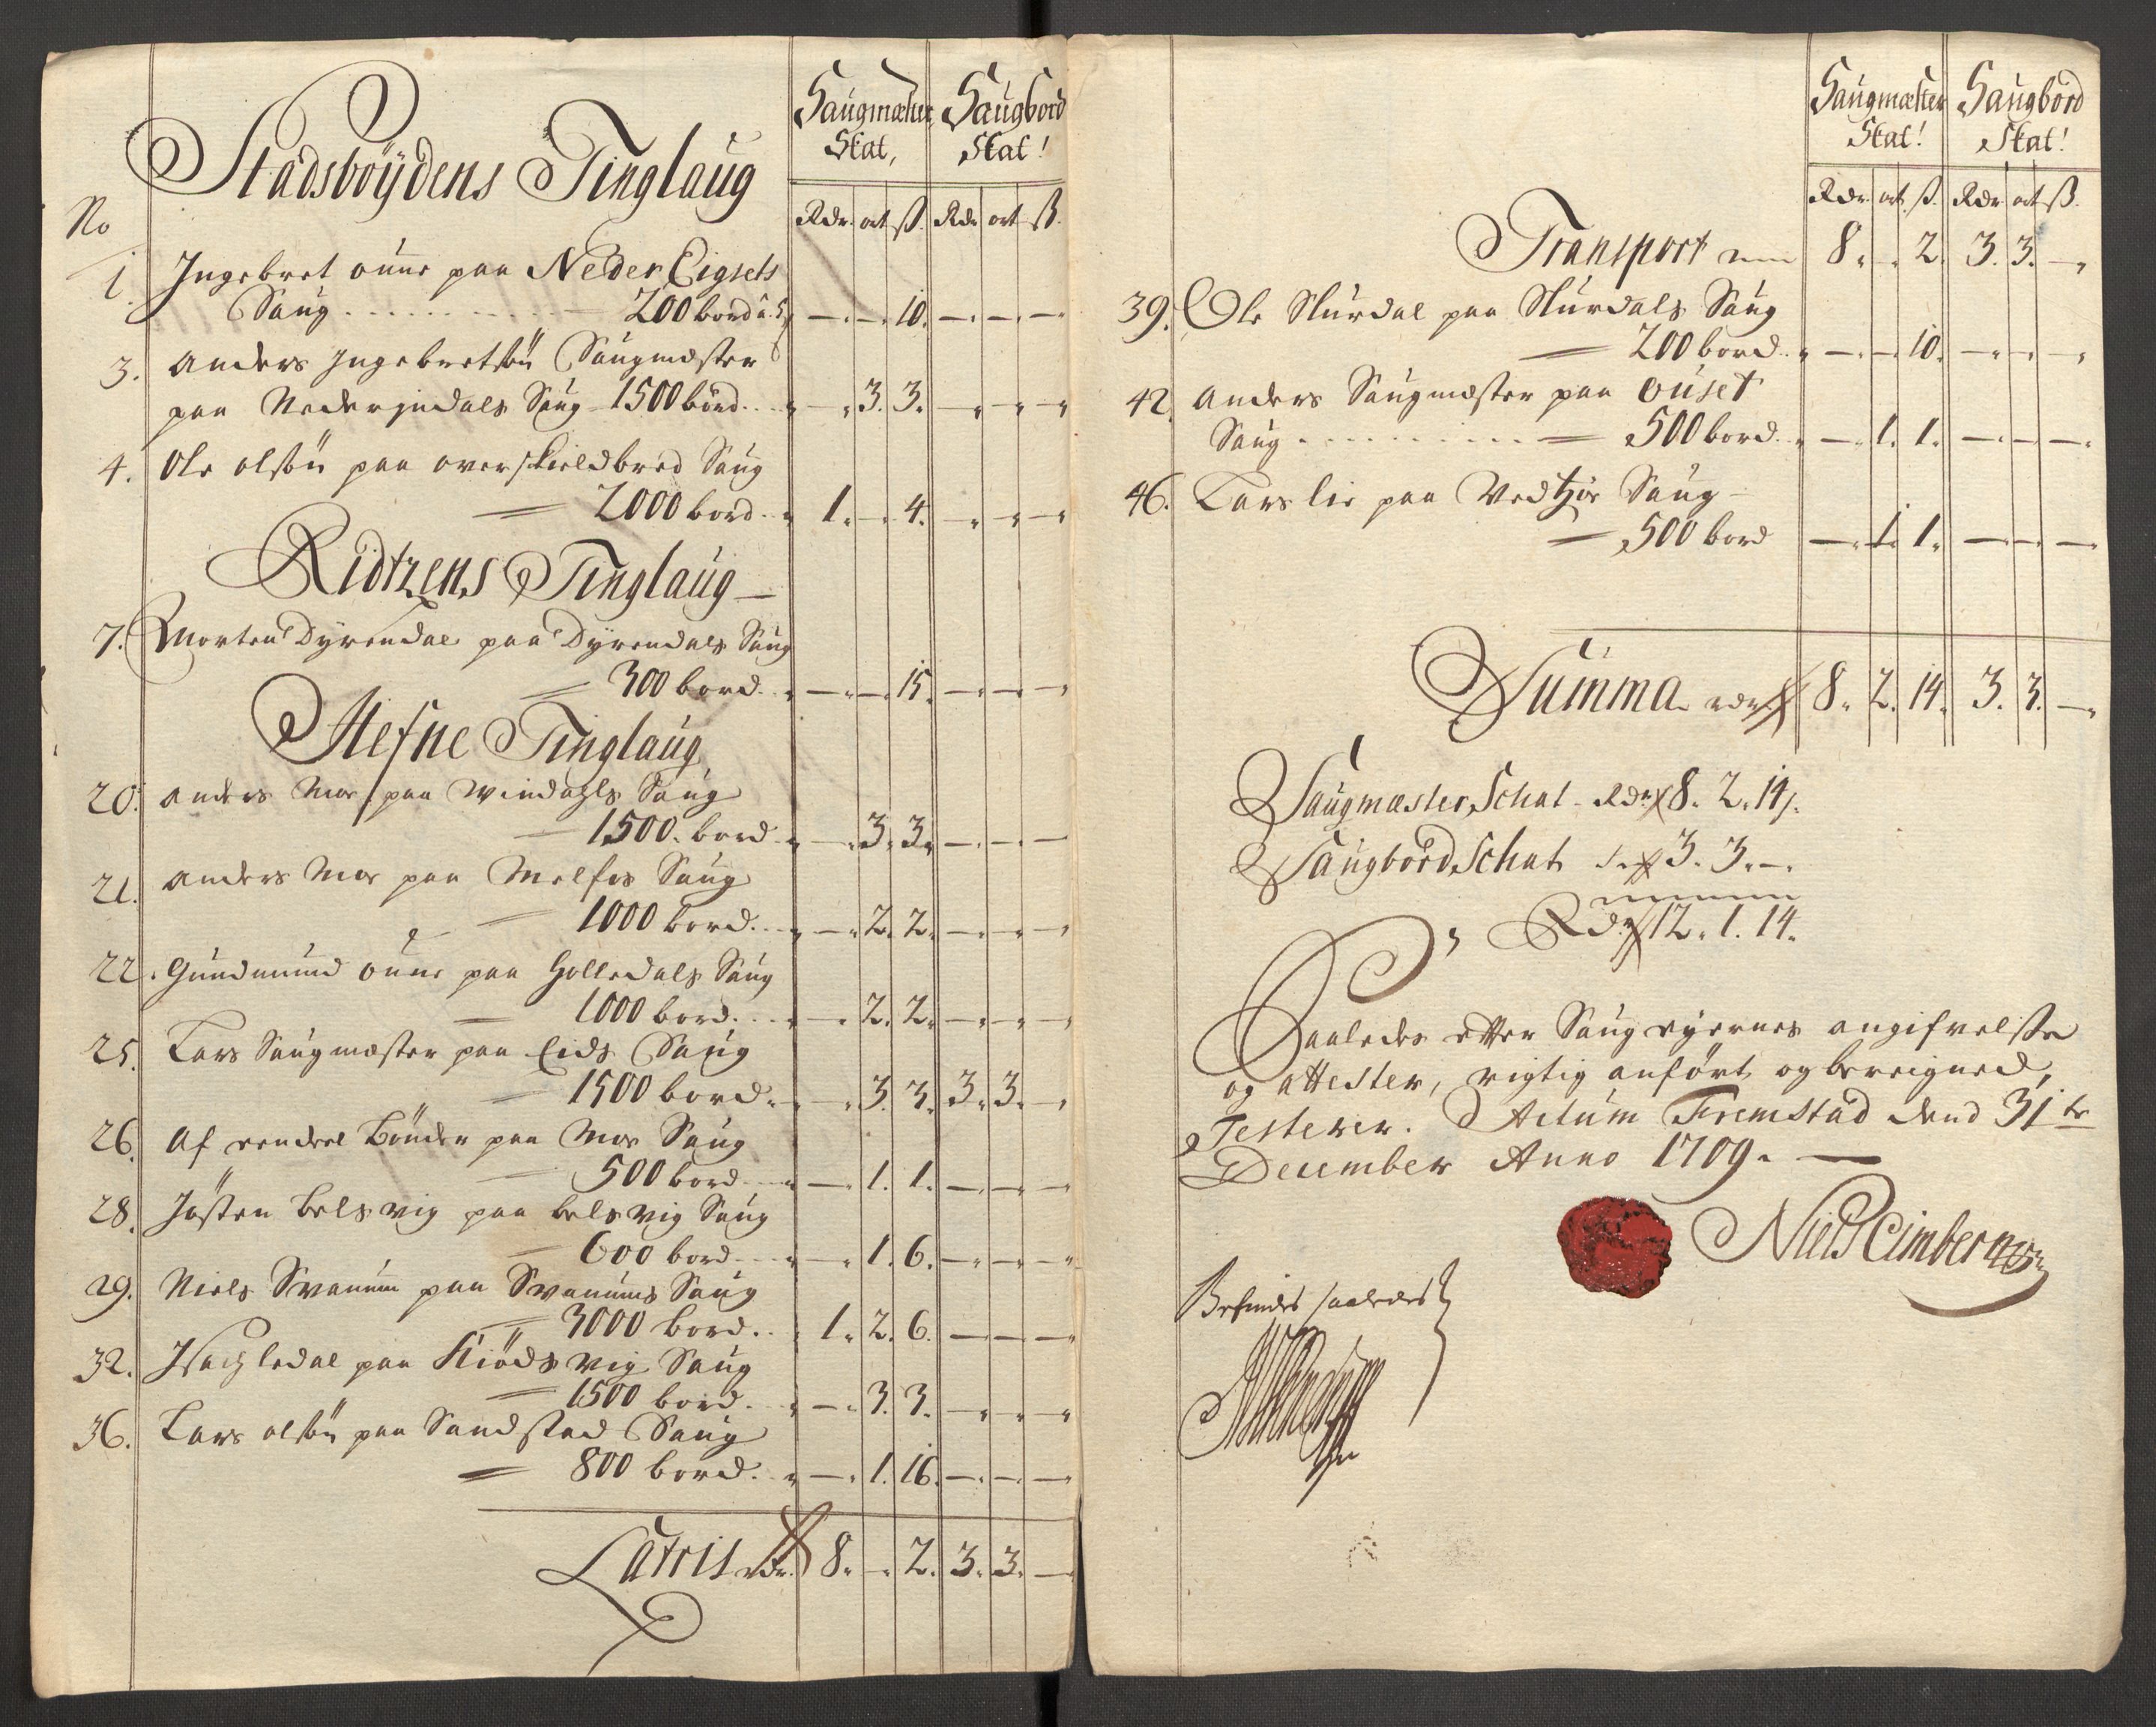 Saugmæster Saugbord
Skat, Skat!
Stadsböÿdens Tinglaug
No Rdr. ort ß. Rdr ort ß.
1. Ingebret oune paa Neder Eigsets
Saug - - - - 200 bord à 5 ß — — 10. — — —
3. Anders Ingebretsön Saugmæster
paa Nederjndals Saug 1500 bord. — 3. 3. — — —
4. Ole olsön paa overskieldbred Saug
2000 bord 1. — 4. — — —
Ridtzens Tinglaug
7. Morten Dÿrendal paa Dÿrendals Saug
300 bord. — — 15. — — —
Hefne Tinglaug
20. Anders Moe paa Windahls Saug
1500. bord — 3. 3. — — —
21. Anders Moe paa Melfos Saug
1000 bord. — 2. 2. — — —
22. Gundmund oune paa Holledals Saug
1000 bord. — 2. 2. — — —
25. Lars Saugmæster paa Eids Saug
1500 bord. — 3. 3. 3. 3. —
26. Af eendeel Bönder paa Moe Saug
500 bord — 1. 1. — — —
28. Josten belsvig paa belsvig Saug
600 bord — 1. 6. — — —
29. Niels Svanum paa Svanums Saug
3000 bord. 1. 2. 6. — — —
32. Isach ledal paa Kiödsvig Saug
1500 bord. — 3. 3. — — —
36. Lars olsön paa Sandstad Saug
800 bord. — 1. 16. — — —
Latris rdr. 8. — 2. 3. 3. —
Saugmæster Saugbord
Skat! Skat!
Rdr. ort. ß. Rdr ort ß.
Transport 8. — 2. 3. 3. —
39. Ole Slurdal paa Slurdals Saug
200 bord. — — 10. — — —
42. Anders Saugmæster paa ouset
Saug - - - - 500 bord. — 1. 1. — — —
46. Lars lie paa Vedtzöe Saug
500 bord — 1. 1. — — —
Summa rdr 8. 2. 14. 3. 3. —
Saugmæster Schat Rdr 8. 2. 14.
Saugbord Schat 3. 3. —.
Rdr 12. 1. 14.
Saaledes efter Saug eyernes angifvelße
og attester, rigtig anført og bereigned,
Testerer. Actum Fremstad dend 31te
December Anno 1709. —
Niels Cimber
Befindes saaledes